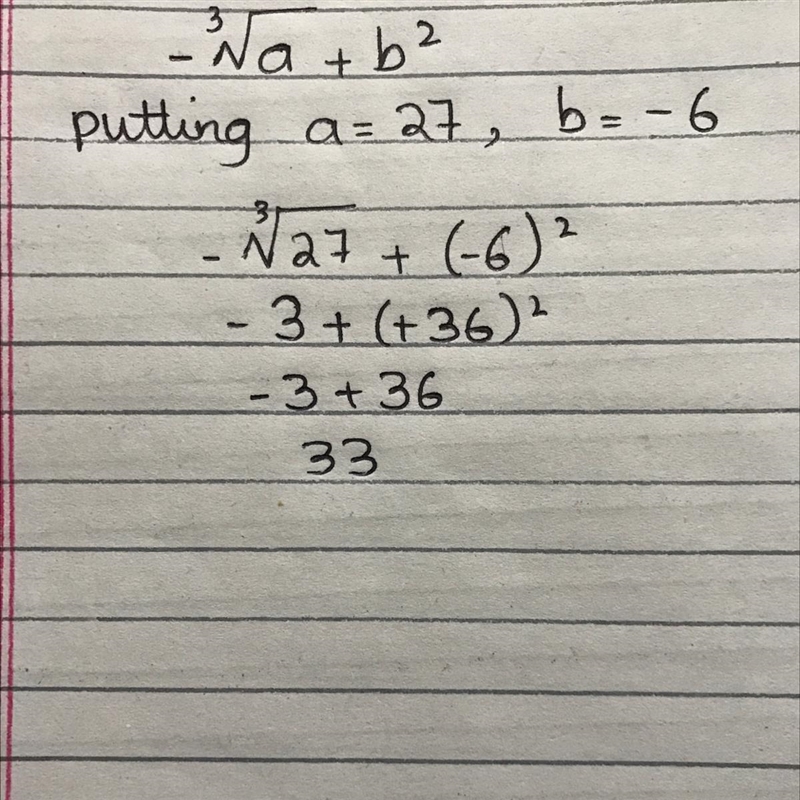 -∛a + b²
putting a = 27, b = -6
-∛27 + (-6)²
-3 + (+36)²
-3 + 36
33